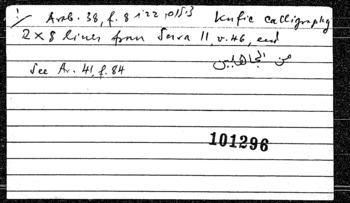 Arab. 38, f. 8 Kufic calligraphy
2 x 8 lines from Sura 11, v. 46, end
من الجاهلين
See Ar. 41, f. 84
101296